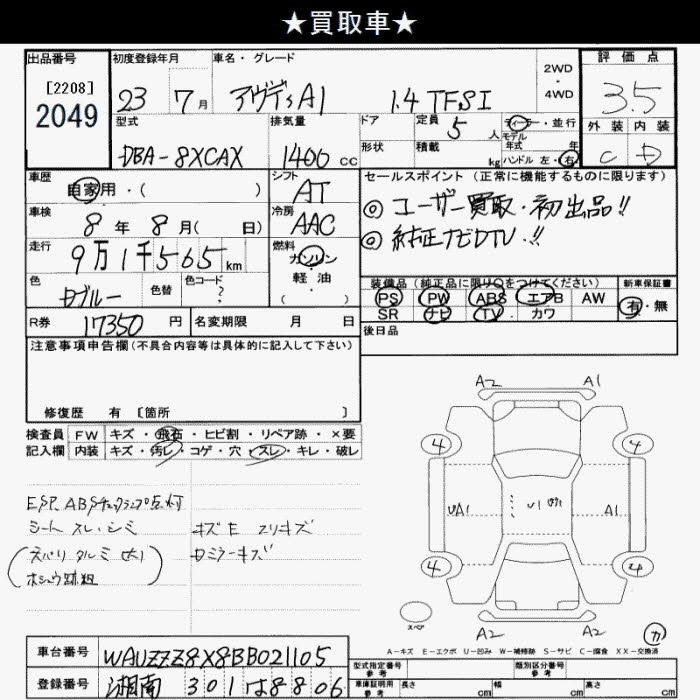 ★買取車★
出品番号 初度登録年月 車名・グレード 2WD・4WD 評価点
[2208]
2049
23 7月 アウディA1 1.4 TFSI 3.5
型式 排気量 ドア 定員 5人 ディーラー・並行
モデル年式 年
外装 内装
DBA-8XCAX 1400cc 形状 積載 kg ハンドル 左・右 C D
車歴 自家用・( ) シフト AT
セールスポイント(正常に機能するものに限ります)
車検 8年 8月( 日) 冷房 AAC
◎ユーザー買取・初出品!!
◎純正ナビDTV・!!
走行 9万1千565km 燃料 ガソリン・軽油・( )
色 ブルー 色替 色コード ?
装備品(純正品に限り○をつけてください) 新車保証書
PS PW ABS エアB AW 有・無
SR ナビ TV カワ
R券 17350円 名変期限 月 日
後日品
注意事項申告欄(不具合内容等は具体的に記入して下さい)
修復歴 有 [箇所 ]
検査員記入欄 FW キズ・飛石・ヒビ割・リペア跡・×要
内装 キズ・汚レ・コゲ・穴・スレ・キレ・破レ
ESP.ABSチェックランプ点灯
シート スレ・シミ キズE スリキズ
タルミ ミラーキズ
A2 A1
4 4
UA1 U1 A1
4 4
スペア
A2 A2
A-キズ E-エクボ U-凹み W-補修跡 S-サビ C-腐食 XX-交換済
車台番号 WAUZZZ8X8BB021105
型式指定番号 参考 類別区分番号 参考
登録番号 湘南 301 は 8806
車庫証明用 参考 長さ cm 幅 cm 高さ cm